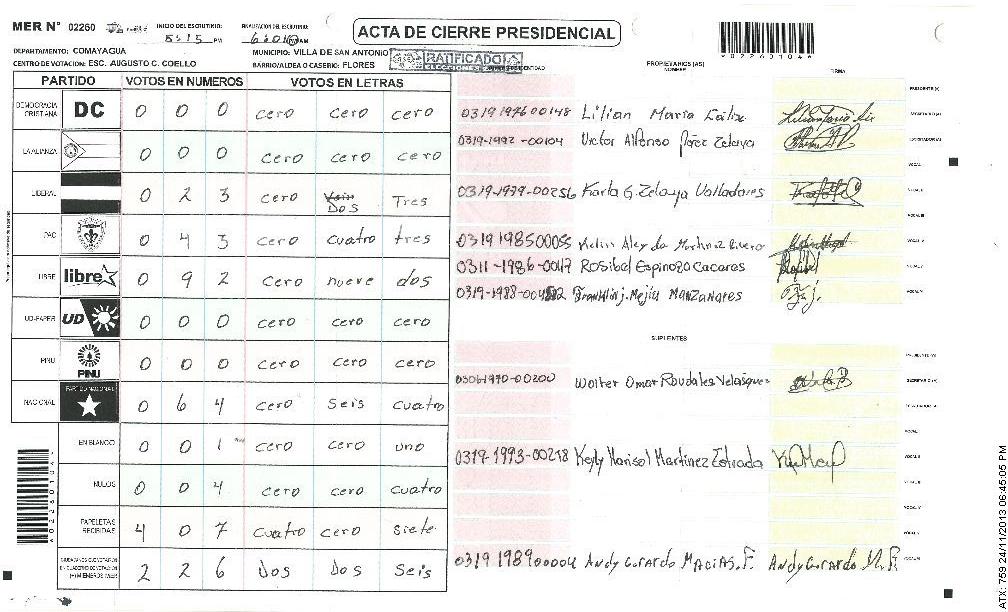 MER N° 02260 INICIO DEL ESCRUTINIO: FINALIZACION DEL ESCRUTINIO:
PM
ACTA DE CIERRE PRESIDENCIAL
*02260104*
DEPARTAMENTO: COMAYAGUA MUNICIPIO: VILLA DE SAN ANTONIO
CENTRO DE VOTACION: ESC. AUGUSTO C. COELLO BARRIO/ALDEA O CASERIO: FLORES
RATIFICADO
PROPIETARIOS (AS)
NOMBRE FIRMA
PARTIDO VOTOS EN NUMEROS VOTOS EN LETRAS
DEMOCRACIA CRISTIANA DC 0 0 0 cero cero cero
LA ALIANZA 0 0 0 cero cero cero
LIBERAL 0 2 3 cero Dos Tres
PAC 0 4 3 cero cuatro tres
LIBRE libre 0 9 2 cero nueve dos
UD-FAPER UD 0 0 0 cero cero cero
PINU PINU 0 0 0 cero cero cero
NACIONAL PARTIDO NACIONAL 0 6 4 cero seis cuatro
EN BLANCO 0 0 1 cero cero uno
NULOS 0 0 4 cero cero cuatro
PAPELETAS RECIBIDAS 4 0 7 cuatro cero siete
2 2 6 Dos Dos Seis
0319 1976 00148 Lilian Maria
0319-1992-00104 Victor Alfonso Pérez Zelaya
0319-1979-00256 Karla G. Zelaya Valladares
0319 1985 00055 Martinez Rivero
0311-1986-0047 Rosibel Espinoza Caceres
Franklin j. Mejía Manzanares
SUPLENTES
0306 1970-00200 Walter Omar Raudales Velasquez
0319-1993-00218 Kerly Marisol Martinez Estrada
0319 1989 00004 Andy Gerardo Macias. F. Andy Gerardo M. F.
*02260104*
ATX: 759 24/11/2013 06:45:05 PM